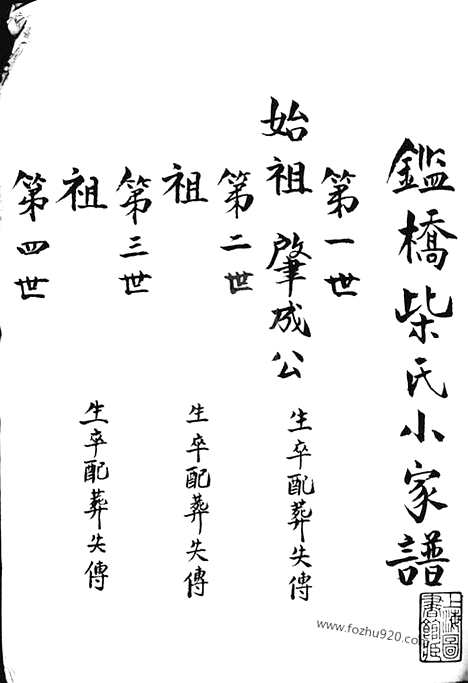 鑑橋柴氏小家譜
第一世
始祖肇成公 生卒配葬失傳
第二世
祖 生卒配葬失傳
第三世
祖 生卒配葬失傳
第四世
上海圖書館藏
www.fozhu920.com